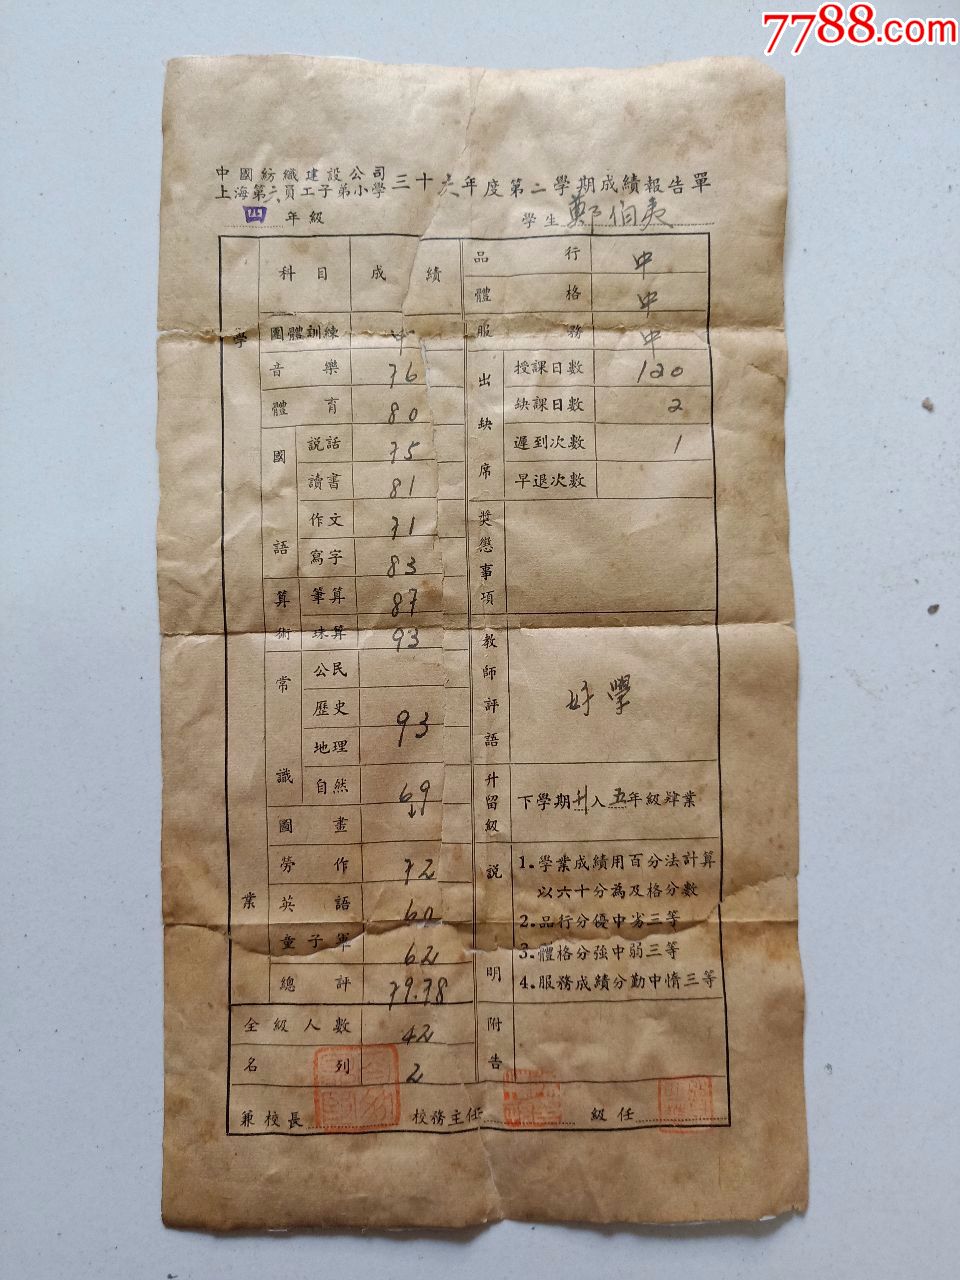 7788.com
中國紡織建設公司
上海第六員工子弟小學
三十六年度第二學期成績報告單
四年級
學生鄭伯夷
學業
科目 成績
團體訓練 中
音樂 76
體育 80
國語
說話 75
讀書 81
作文 71
寫字 83
算術
筆算 87
珠算 93
常識
公民
歷史 93
地理
自然 69
圖畫
勞作 72
英語 60
童子軍 62
總評 79.78
全級人數 42
名列 2
品行 中
體格 中
服務 中
出缺席
授課日數 120
缺課日數 2
遲到次數 1
早退次數
獎懲事項
教師評語
好學
升留級
下學期升入五年級肄業
說明
1.學業成績用百分法計算
以六十分為及格分數
2.品行分優中劣三等
3.體格分強中弱三等
4.服務成績分勤中惰三等
附告
兼校長 校務主任 級任